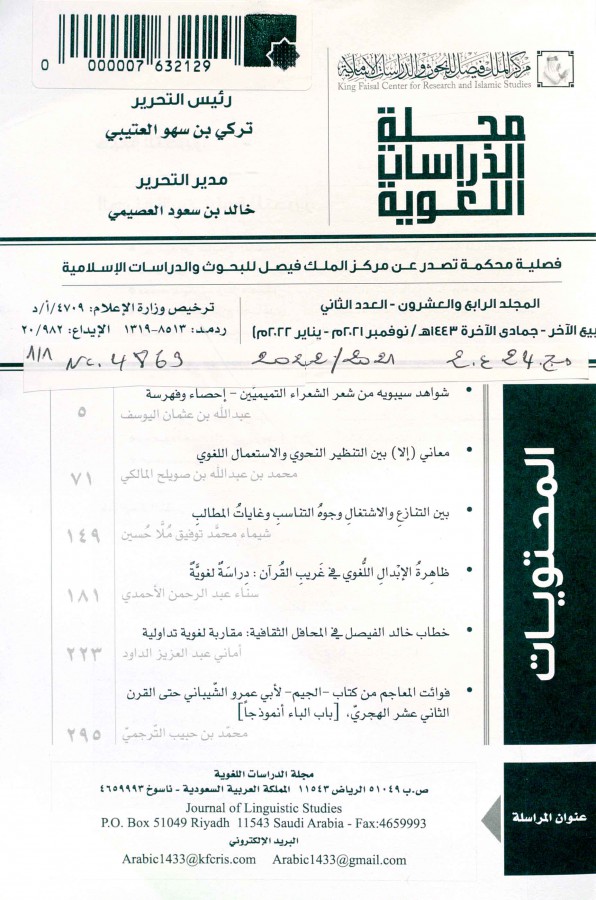 0 000007 632129
مركز الملك فيصل للبحوث والدراسات الإسلامية
King Faisal Center for Research and Islamic Studies
مجلة
الدراسات
اللغوية
رئيس التحرير
تركي بن سهو العتيبي
مدير التحرير
خالد بن سعود العصيمي
فصلية محكمة تصدر عن مركز الملك فيصل للبحوث والدراسات الإسلامية
المجلد الرابع والعشرون - العدد الثاني
بيع الآخر - جمادى الآخرة ١٤٤٣هـ / نوفمبر ٢٠٢١م - يناير ٢٠٢٢م)
ترخيص وزارة الإعلام: ٤٧٠٩/أ/د
ردمد: ٨٥١٣-١٣١٩ الإيداع: ٢٠/٩٨٢
مج.24 ع.2 2021/2022 Nc.4863 1/1
المحتويات
• شواهد سيبويه من شعر الشعراء التميميّين - إحصاء وفهرسة
عبدالله بن عثمان اليوسف ٥
• معاني (إلا) بين التنظير النحوي والاستعمال اللغوي
محمد بن عبدالله بن صويلح المالكي ٧١
• بين التنازعِ والاشتغالِ وجوهُ التناسبِ وغاياتُ المطالبِ
شيماء محمَّد توفيق مُلَّا حُسين ١٤٩
• ظاهِرةُ الإبْدالِ اللُّغوي في غَريبِ القُرآن : دِراسَةٌ لغويَّةٌ
سناء عبد الرحمن الأحمدي ١٨١
• خطاب خالد الفيصل في المحافل الثقافية: مقاربة لغوية تداولية
أماني عبد العزيز الداود ٢٢٣
• فوائت المعاجم من كتاب -الجيم- لأبي عمرو الشّيباني حتى القرن
الثاني عشر الهجريّ، [باب الباء أنموذجاً]
محمّد بن حبيب التّرجميّ ٢٩٥
عنوان المراسلة
مجلة الدراسات اللغوية
ص.ب ٥١٠٤٩ الرياض ١١٥٤٣ المملكة العربية السعودية - ناسوخ ٤٦٥٩٩٩٣
Journal of Linguistic Studies
P.O. Box 51049 Riyadh 11543 Saudi Arabia - Fax:4659993
البريد الإلكتروني
Arabic1433@kfcris.com Arabic1433@gmail.com